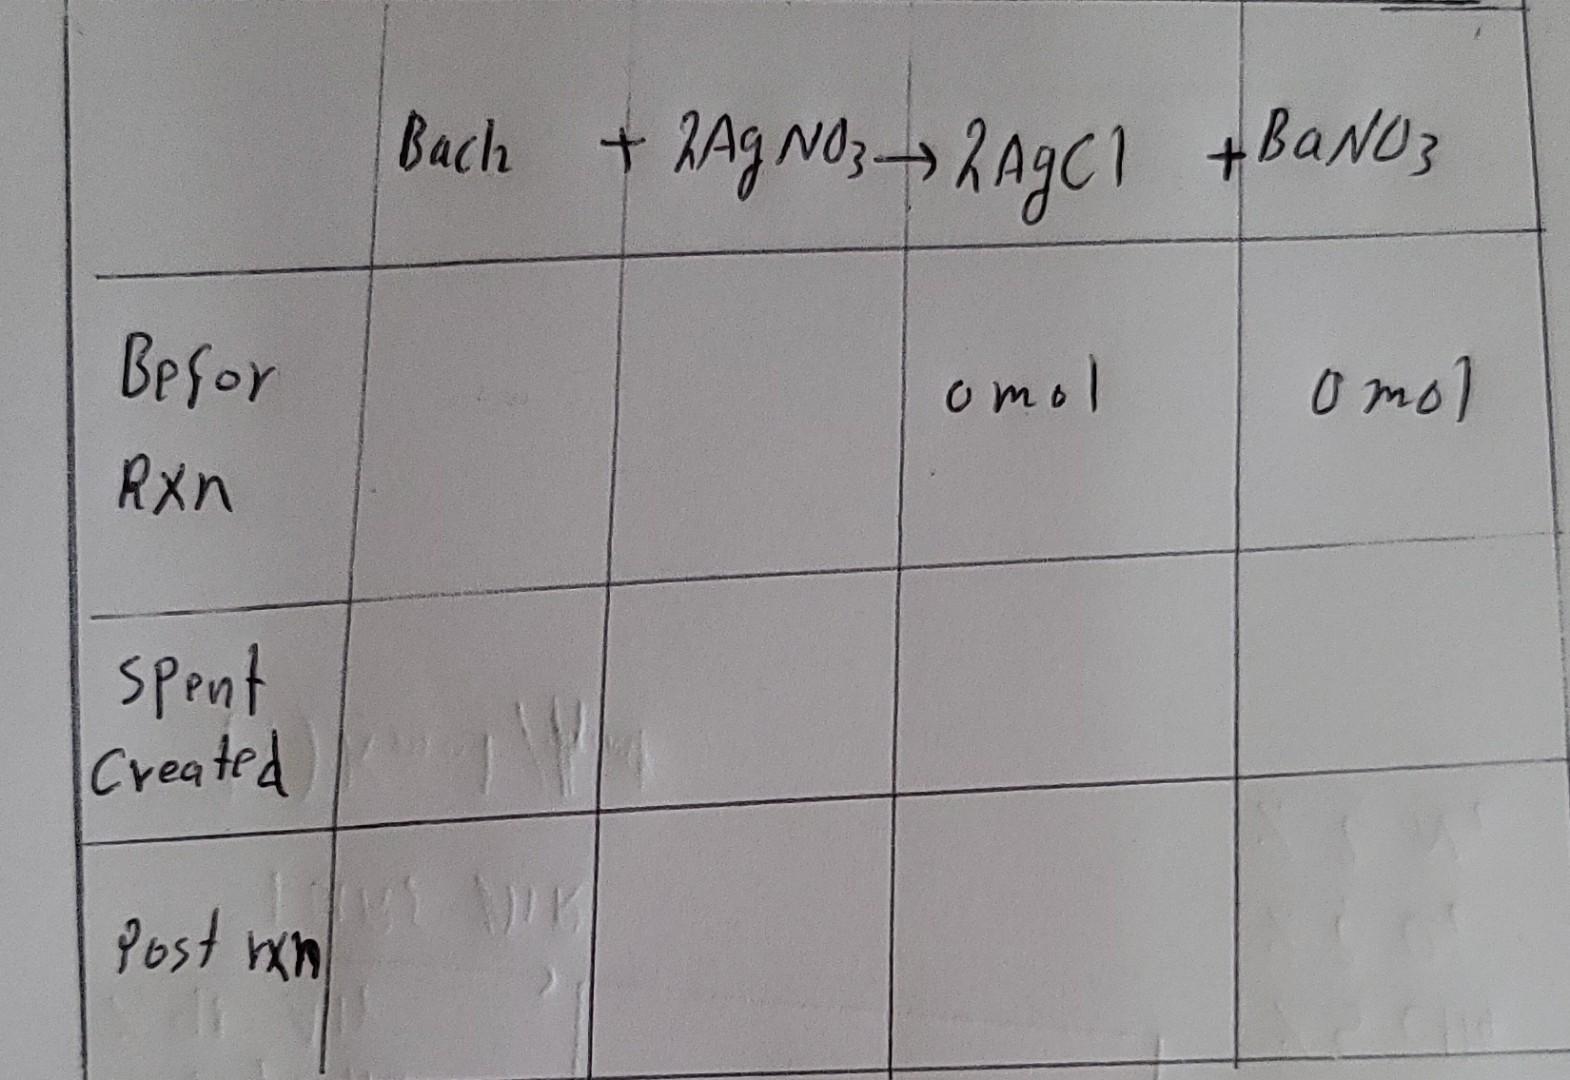 Bacl2 + 2AgNO3 → 2AgCl + BaNO3
Befor 0 mol 0 mol
Rxn
Spent
Created
Post rxn